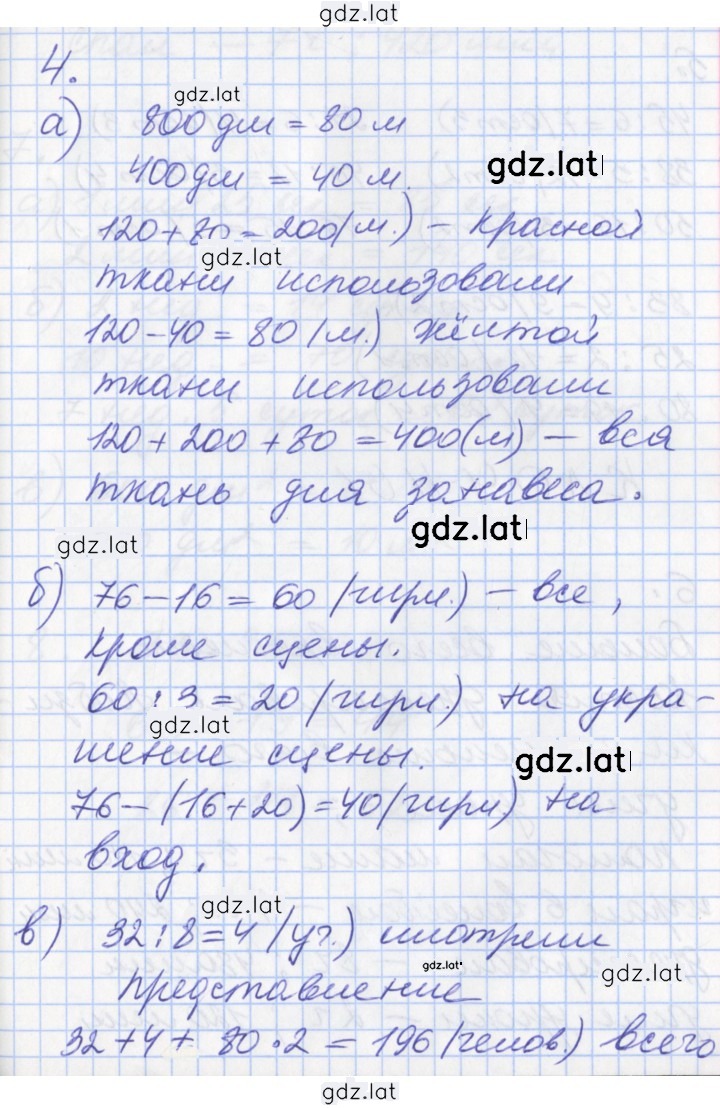 gdz.lat
4.
gdz.lat
а) 800 дм = 80 м
400 дм = 40 м.
gdz.lat
120 + 80 = 200 (м.) – красной
gdz.lat
ткани использовали
120 – 40 = 80 (м.) жёлтой
ткани использовали
120 + 200 + 80 = 400 (м) – вся
ткань для занавеса.
gdz.lat
gdz.lat
б) 76 – 16 = 60 (гирл.) – все,
кроме сцены.
60 : 3 = 20 (гирл.) на укра-
gdz.lat
шение сцены.
gdz.lat
76 – (16 + 20) = 40 (гирл) на
вход.
gdz.lat
в) 32 : 8 = 4 (уч.) смотрели
gdz.lat
gdz.lat
представление
32 + 4 + 80 · 2 = 196 (челов.) всего
gdz.lat